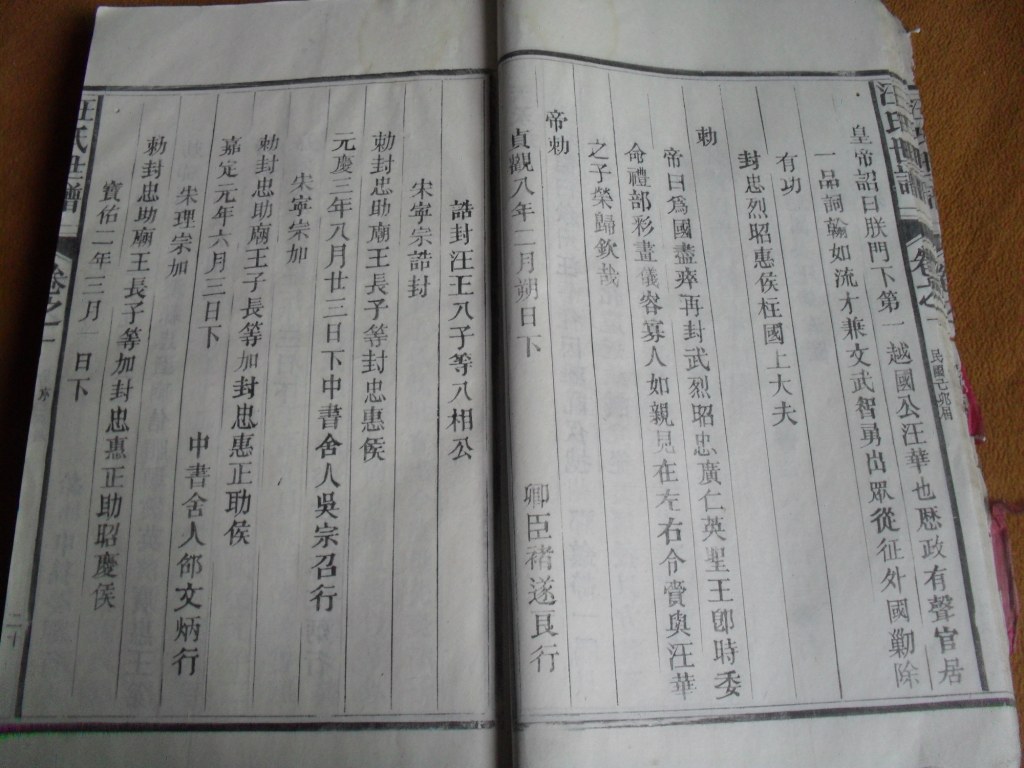 汪氏世譜
卷之一
皇帝詔曰朕門下第一越國公汪華也歷政有聲官居
一品詞翰如流才兼文武智勇出眾從征外國勦除
有功
封忠烈昭惠侯柱國上大夫
勅
帝曰爲國盡瘁再封武烈昭忠廣仁英聖王卽時委
命禮部彩畫儀容寡人如親見在左右令賫與汪華
之子榮歸欽哉
帝勅
貞觀八年二月朔日下 卿臣褚遂良行
誥封汪王八子等八相公
宋寧宗誥封
勅封忠助廟王長子等封忠惠侯
元慶三年八月廿三日下中書舍人吳宗召行
宋寧宗加
勅封忠助廟王子長等加封忠惠正助侯
嘉定元年六月三日下 中書舍人邰文炳行
宋理宗加
勅封忠助廟王長子等加封忠惠正助昭慶侯
寶佑二年三月一日下
汪氏世譜
卷之一
序
二十